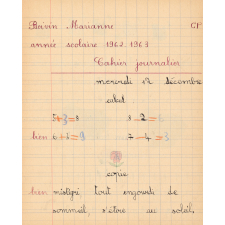 Boivin Marianne CP
année scolaire 1962-1963
Cahier journalier
mercredi 12 décembre
calcul
5+3=8 8-2=
bien 6+3=9 7-4=3
copie
bien mistigri tout engourdi de
sommeil, s'étire au soleil.